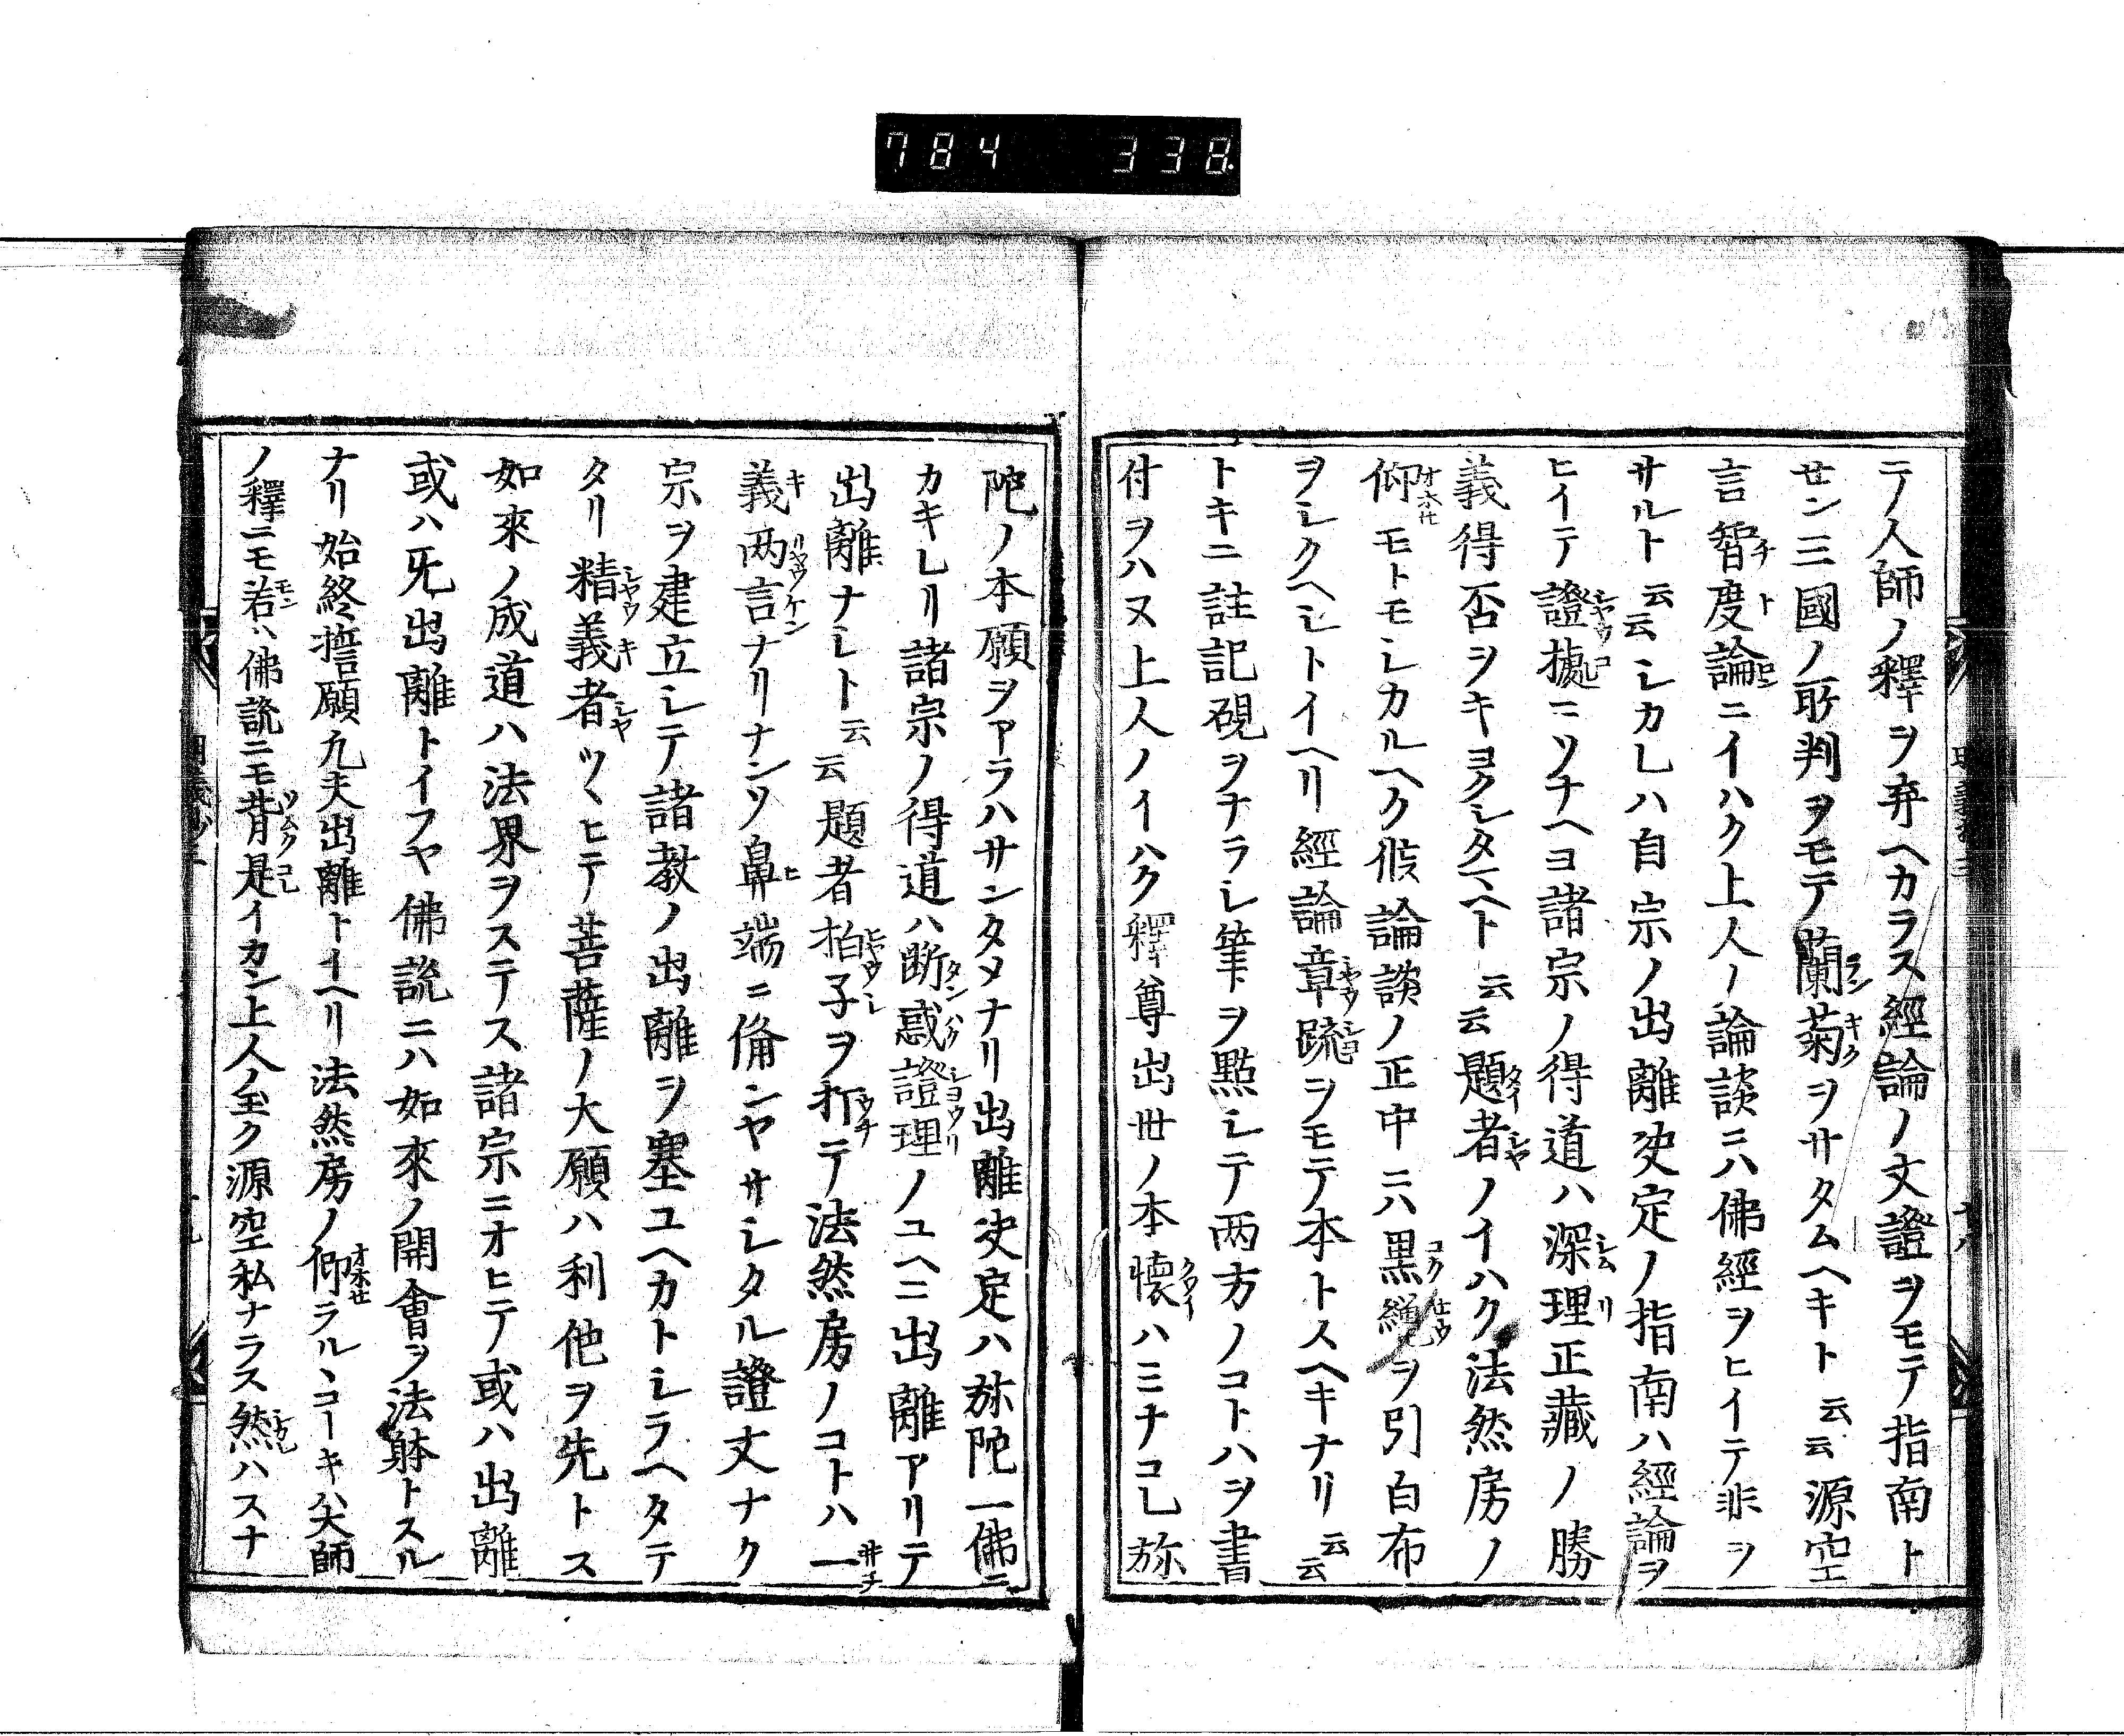 784 338
テノ人師ノ釋ヲ弃ヘカラス經論ノ文證ヲモテ指南ト
せン三國ノ所判ヲモテ蘭菊ヲサタムヘキト云云源空
言智度論ニイハク上人ノ論談ニハ佛經ヲヒイテ非ヲ
サルト云云シカレハ自宗ノ出離决定ノ指南ハ經論ヲ
ヒイテ證據ニソナヘヨ諸宗ノ得道ハ深理正藏ノ勝
義得否ヲキヨクシタヘト云云題者ノイハク法然房ノ
仰モトモシカルヘク候論談ノ正中ニハ黒繩ヲ引白布
ヲシクヘシトイヘリ經論章疏ヲモテ本トスヘキナリ云云
トキニ註記硯ヲナラシ筆ヲ點シテ两方ノコトハヲ書
付ヲハヌ上人ノイハク釋尊出世ノ本懷ハミナコレ弥
陀ノ本願ヲアラハサンタメナリ出離决定ハ弥陀一佛ニ
カキレリ諸宗ノ得道ハ断惑證理ノユヘニ出離アリテ
出離ナシト云云題者拍子ヲ打テ法然房ノコトハ一
義两言ナリナンソ鼻端ニ備ンヤサシタル證文ナク
宗ヲ建立シテ諸教ノ出離ヲ塞ユヘカトシラヘタテ
タリ精義者ツヽヒテ菩薩ノ大願ハ利他ヲ先トス
如來ノ成道ハ法界ヲステス諸宗ニオヒテ或ハ出離
或ハ旡出離トイフヤ佛説ニハ如來ノ開會ヲ法躰トスル
ナリ始終誓願九夫出離トイヘリ法然房ノ仰ラルヽコトキハ大師
ノ釋ニモ若ハ佛説ニモ背是イカン上人ノ玉ク源空私ナラス然ハスナ